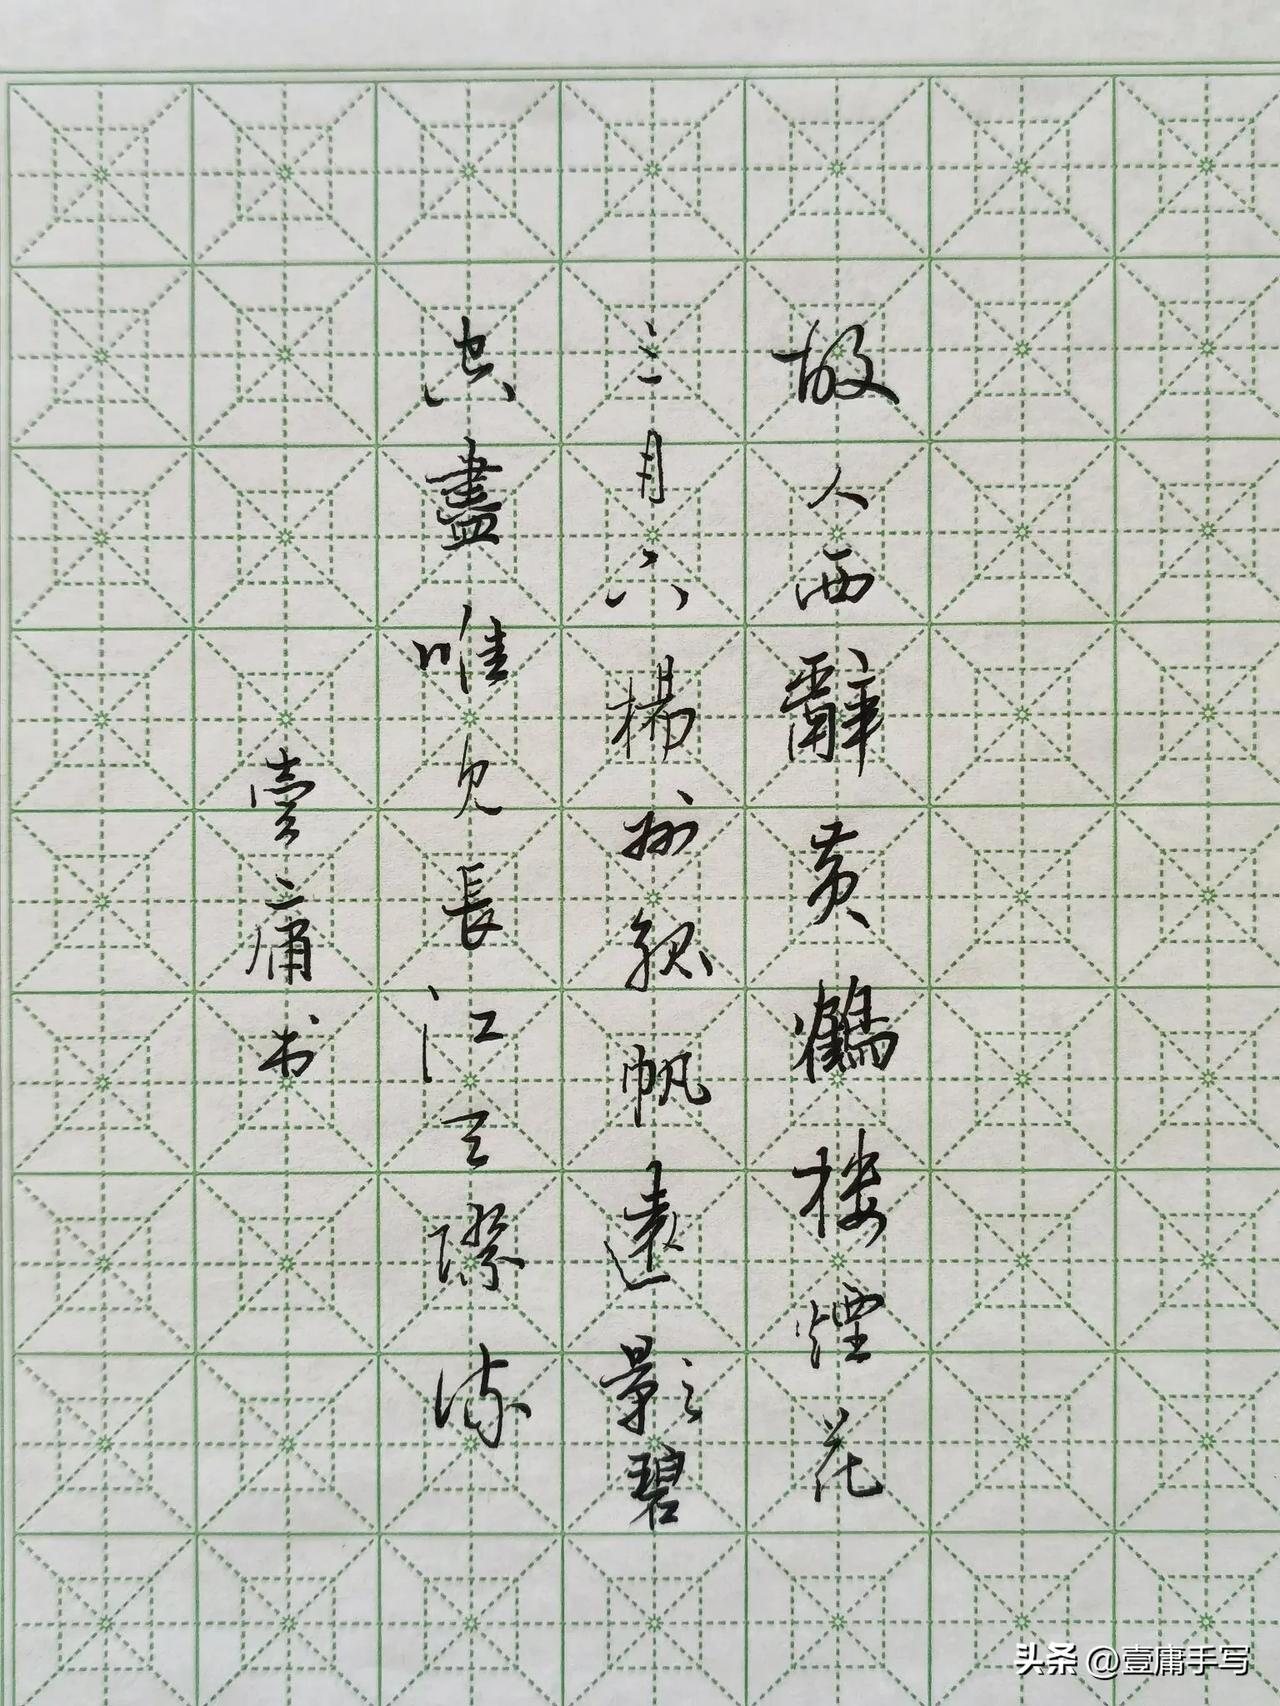 故人西辭黄鶴楼煙花
三月下揚州孤帆遠影碧
空盡唯见長江天際流
壹庸书
头条 @壹庸手写